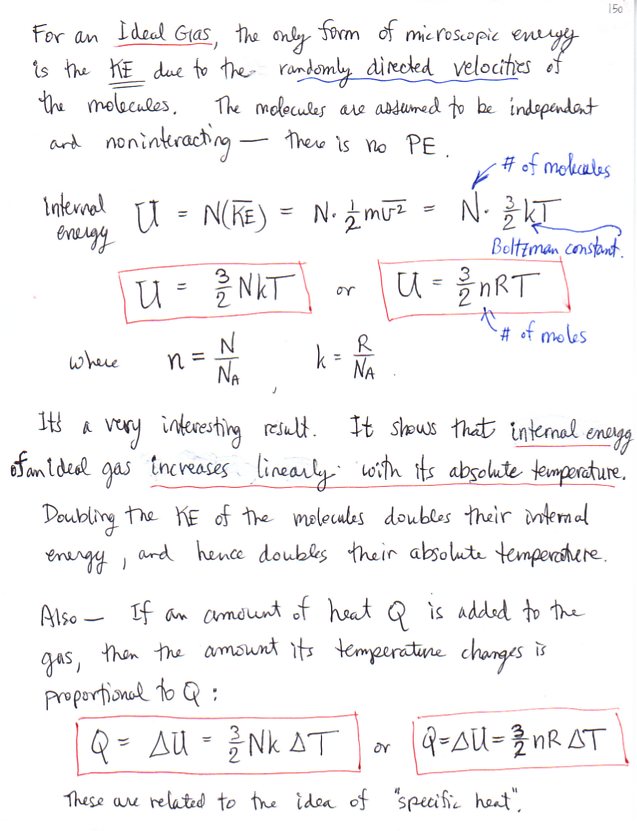 150
For an Ideal Gas, the only form of microscopic energy
is the KE due to the randomly directed velocities of
the molecules. The molecules are assumed to be independent
and noninteracting — there is no PE.
# of molecules
Internal energy U = N(K̅E̅) = N · ½ m v̅² = N · 3/2 kT
Boltzman constant.
U = 3/2 NkT or U = 3/2 nRT
# of moles
where n = N/N_A , k = R/N_A .
It's a very interesting result. It shows that internal energy
of an ideal gas increases linearly with its absolute temperature.
Doubling the KE of the molecules doubles their internal
energy, and hence doubles their absolute temperature.
Also — If an amount of heat Q is added to the
gas, then the amount its temperature changes is
proportional to Q :
Q = ΔU = 3/2 Nk ΔT or Q = ΔU = 3/2 nR ΔT
These are related to the idea of "specific heat".